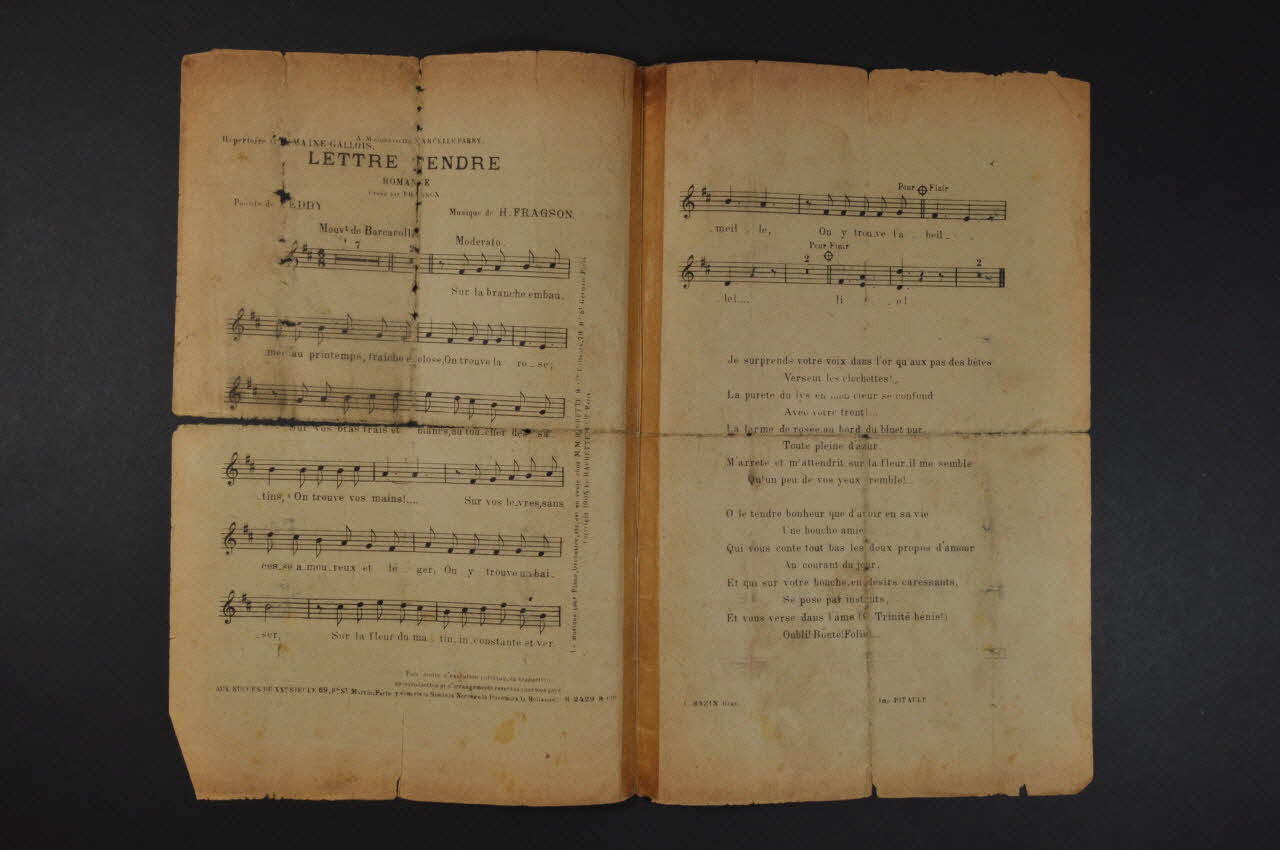 A Mademoiselle MARCELLE PARNY.
Répertoire GERMAINE GALLOIS.
LETTRE TENDRE
ROMANCE
Créée par FRAGSON
Poésie de TEDDY
Musique de H. FRAGSON.
Mouvt de Barcarolle
7
2
Moderato
Sur la branche embau_
_mée au printemps, fraîche éclose, On trouve la ro_se;
Sur vos bras frais et blancs, au tou_cher de sa_
_tins, On trouve vos mains!....
Sur vos lè_vres, sans
ces_se a_mou_reux et lé_ger, On y trouve un bai_
_ser,
Sur la fleur du ma_tin, in_constante et ver_
Tous droits d'exécution publique, de traduction,
de reproduction et d'arrangements réservés pour tous pays
AUX SUCCÈS DU XXe SIÈCLE 69, Fg St Martin, Paris y compris la Suède, la Norvège, le Danemark, la Hollande.
H 2429 R
Pour Finir
_meil_le,
On y trou_ve l'a_beil_
Pour Finir
2
2
_le!....
li e!
Je surprends votre voix dans l'or qu'aux pas des bêtes
Versent les clochettes!..
La pureté du lys en mon cœur se confond
Avec votre front!..
La larme de rosée au bord du bluet pur,
Toute pleine d'azur.
M'arrête et m'attendrit sur la fleur, il me semble
Qu'un peu de vos yeux tremble!...
O le tendre bonheur que d'avoir en sa vie
Une bouche amie
Qui vous conte tout bas les doux propos d'amour
Au courant du jour,
Et qui sur votre bouche, en désirs caressants,
Se pose par instants,
Et vous verse dans l'âme (O Trinité bénie!)
Oubli! Bonté! Folie!...
BAZIN Grav.
Imp. PITAULT